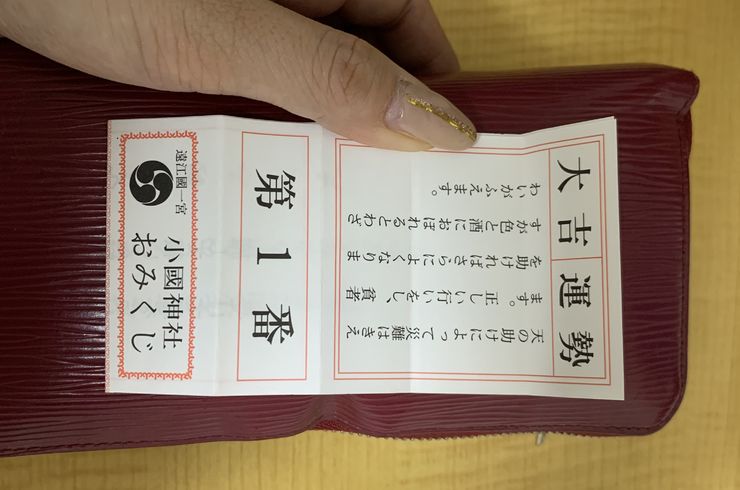 大吉 運勢
天の助けによって災難はきえ
ます。正しい行いをし、貧者
を助ければさらによくなりま
すが色と酒におぼれるとわざ
わいがふえます。
第1番
遠江國一宮
小國神社おみくじ